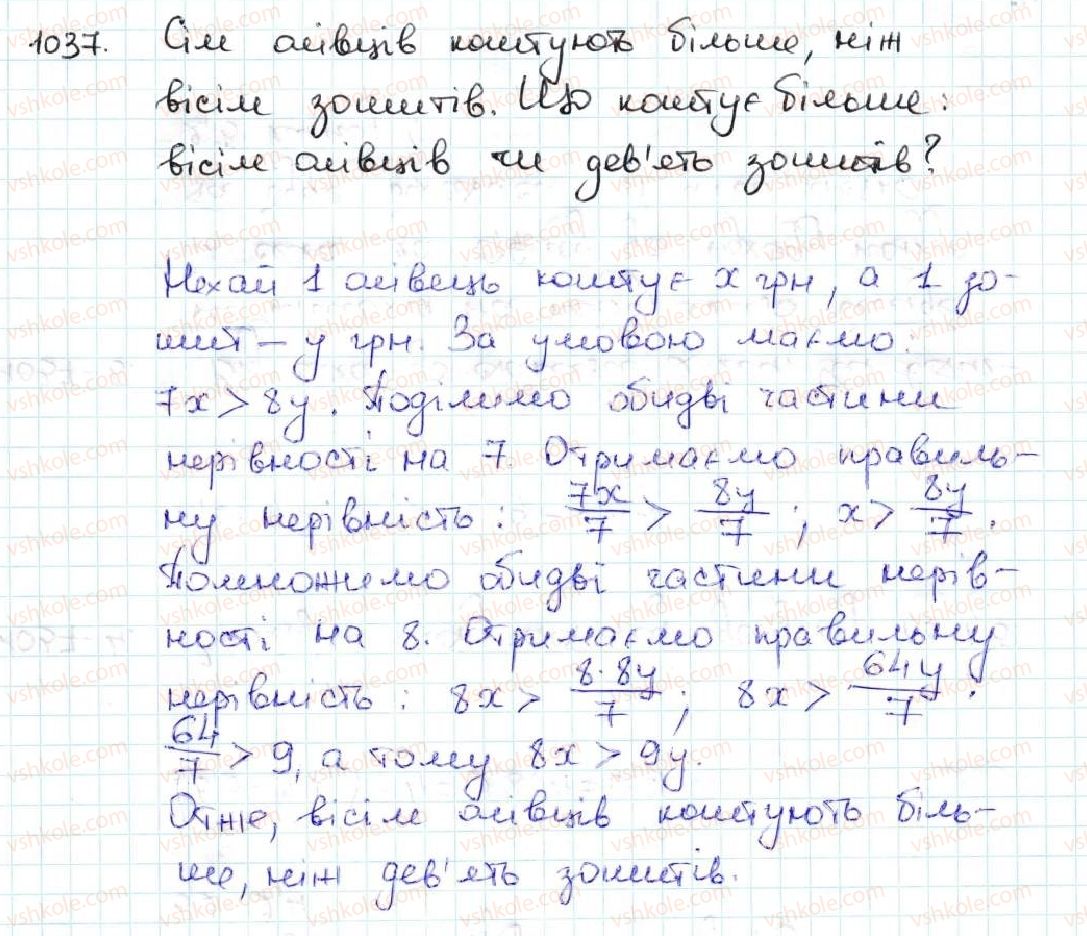 1037. Сім олівців коштують більше, ніж
вісім зошитів. Що коштує більше:
вісім олівців чи дев'ять зошитів?
Нехай 1 олівець коштує x грн, а 1 зо-
шит – y грн. За умовою маємо:
7x > 8y. Поділимо обидві частини
нерівності на 7. Отримаємо правиль-
ну нерівність: 7x/7 > 8y/7; x > 8y/7.
Помножимо обидві частини нерів-
ності на 8. Отримаємо правильну
нерівність: 8x > 8·8y/7; 8x > 64y/7;
64/7 > 9, а тому 8x > 9y.
Отже, вісім олівців коштують біль-
ше, ніж дев'ять зошитів.
vshkole.com